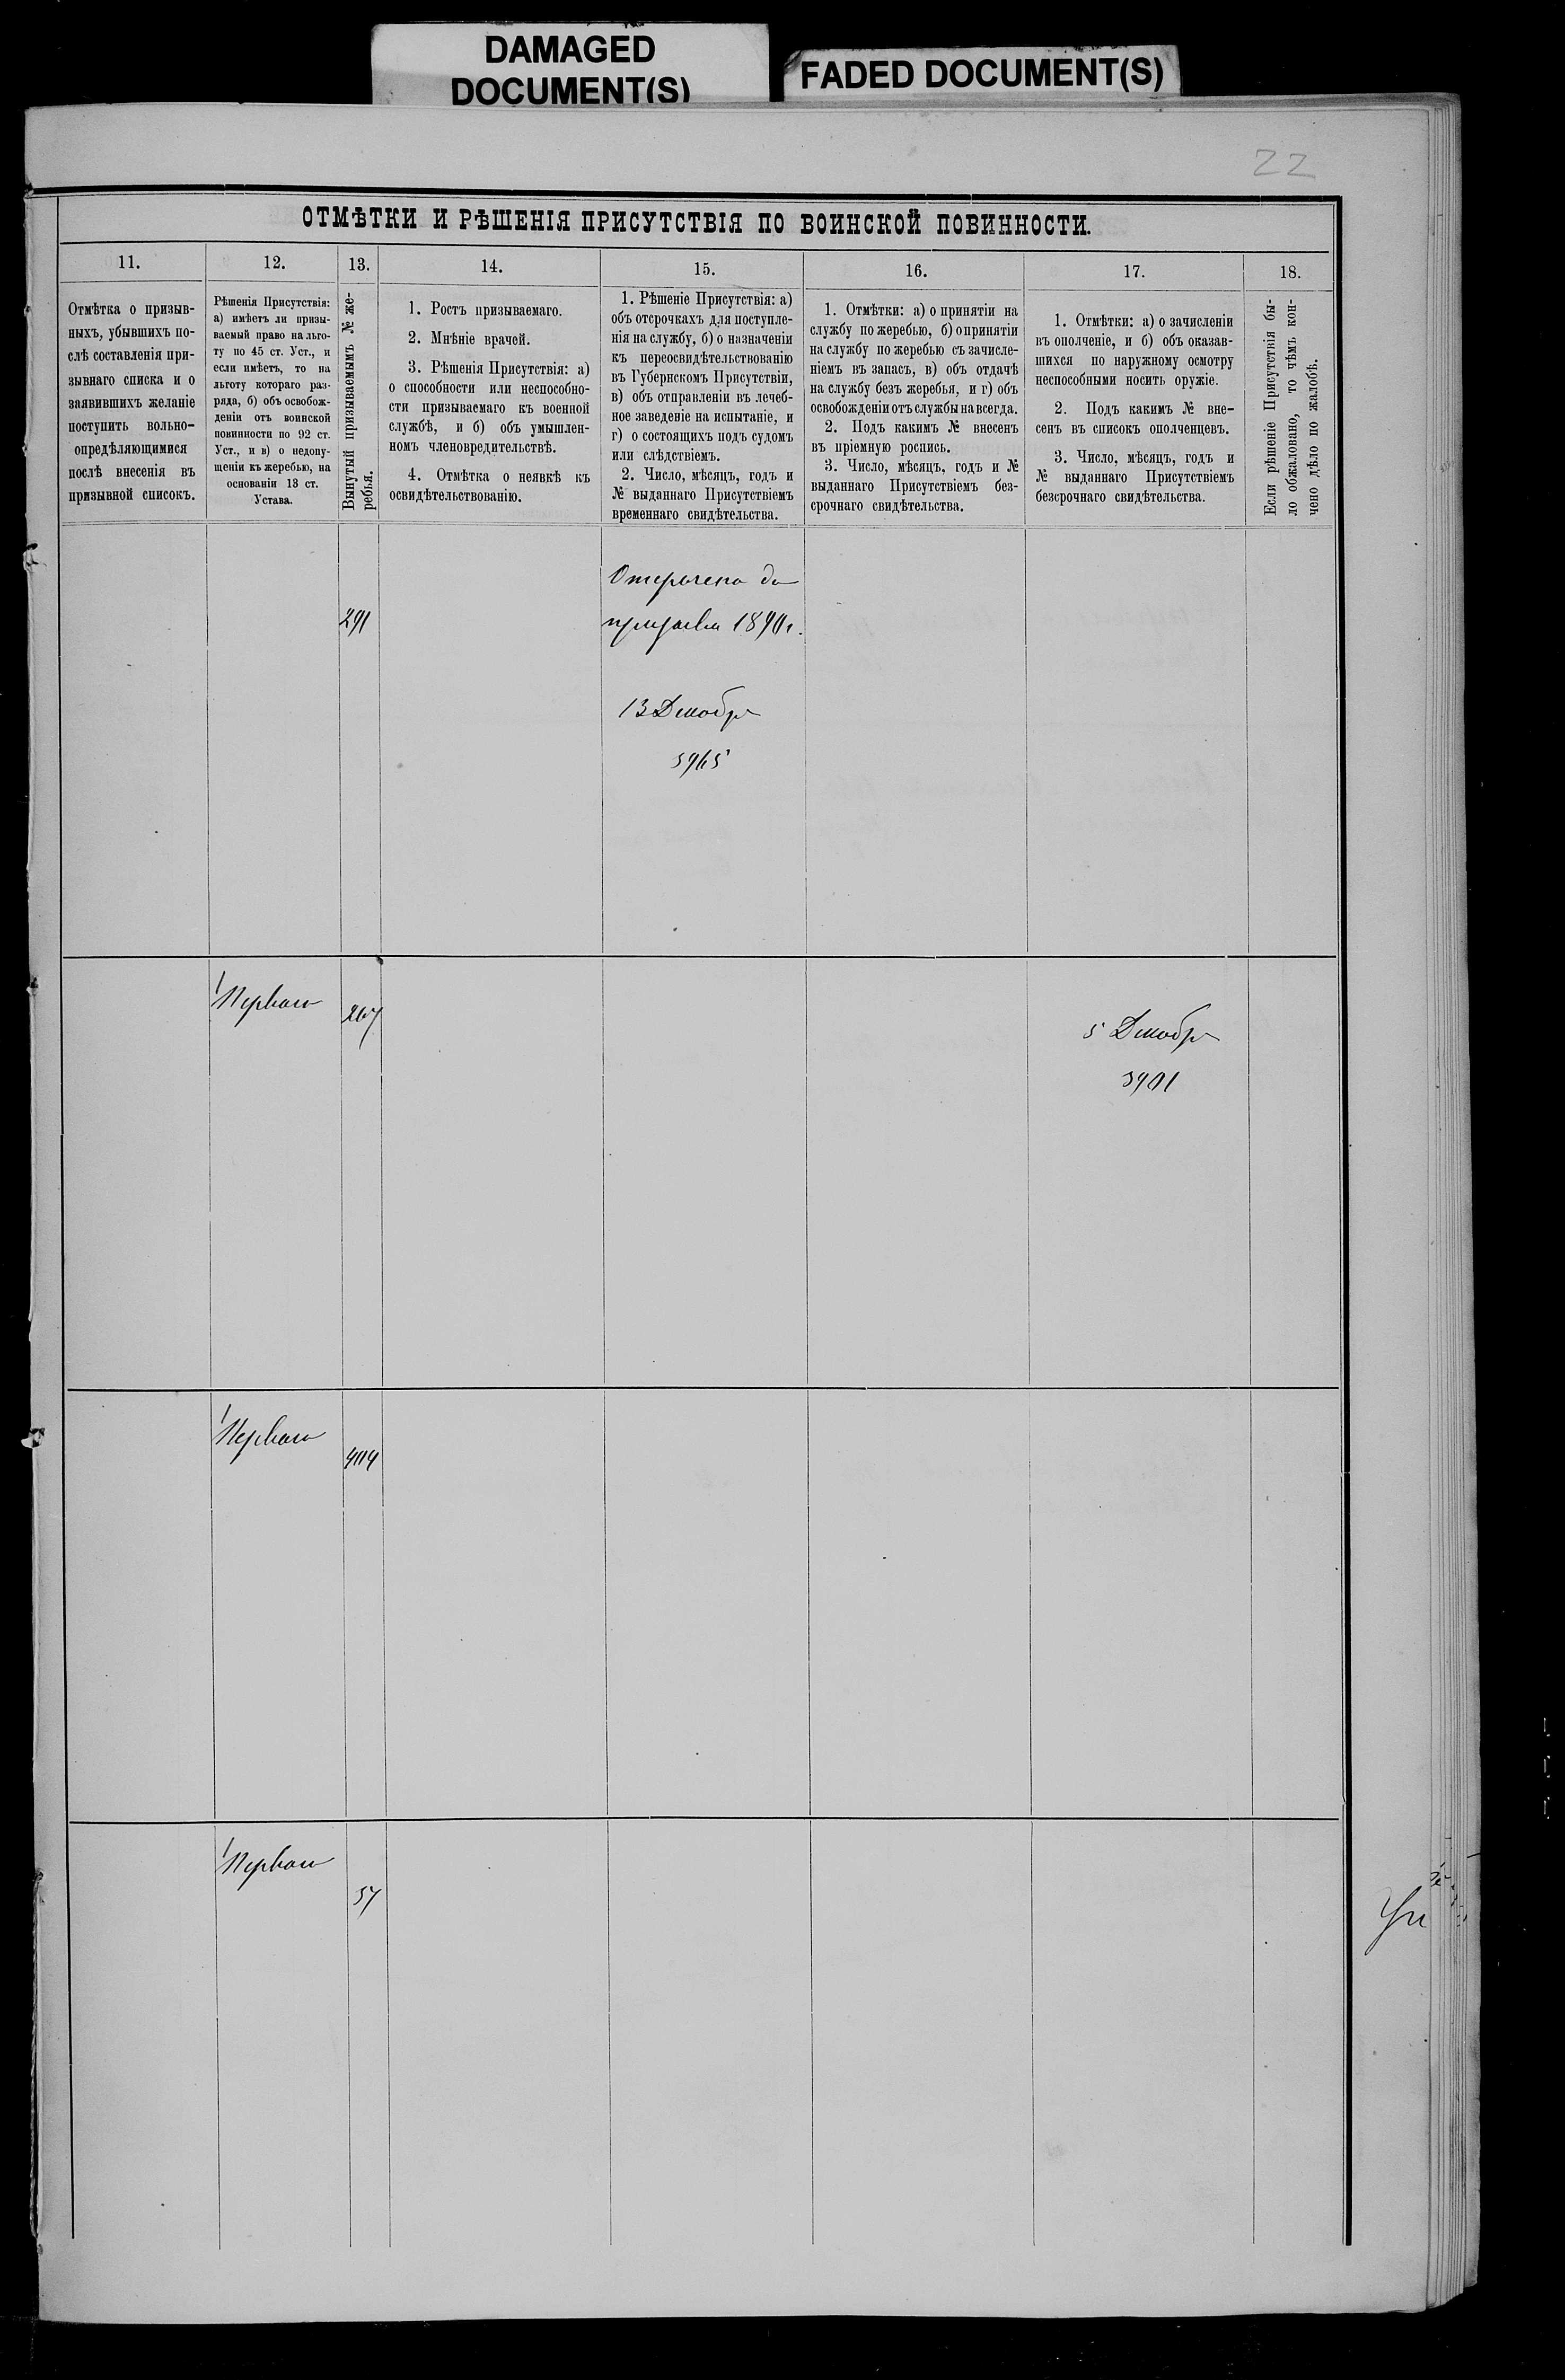 DAMAGED
DOCUMENT(S)
FADED DOCUMENT(S)
22
ОТМѢТКИ И РѢШЕНІЯ ПРИСУТСТВІЯ ПО ВОИНСКОЙ ПОВИННОСТИ.
11.
Отмѣтка о призыв-
ныхъ, убывшихъ по-
слѣ составленія при-
зывнаго списка и о
заявившихъ желаніе
поступить вольно-
опредѣляющимися
послѣ внесенія въ
призывной списокъ.
12.
Рѣшенія Присутствія:
а) имѣетъ ли призы-
ваемый право на льго-
ту по 45 ст. Уст., и
если имѣетъ, то на
льготу котораго раз-
ряда, б) объ освобож-
деніи отъ воинской
повинности по 92 ст.
Уст., и в) о недопу-
щеніи къ жеребью, на
основаніи 13 ст.
Устава.
13.
Вынутый призываемымъ № же-
ребья.
14.
1. Ростъ призываемаго.
2. Мнѣніе врачей.
3. Рѣшенія Присутствія: а)
о способности или неспособно-
сти призываемаго къ военной
службѣ, и б) объ умышлен-
номъ членовредительствѣ.
4. Отмѣтка о неявкѣ къ
освидѣтельствованію.
15.
1. Рѣшеніе Присутствія: а)
объ отсрочкахъ для поступле-
нія на службу, б) о назначеніи
къ переосвидѣтельствованію
въ Губернскомъ Присутствіи,
в) объ отправленіи въ лечеб-
ное заведеніе на испытаніе, и
г) о состоящихъ подъ судомъ
или слѣдствіемъ.
2. Число, мѣсяцъ, годъ и
№ выданнаго Присутствіемъ
временнаго свидѣтельства.
16.
1. Отмѣтки: а) о принятіи на
службу по жеребью, б) о принятіи
на службу по жеребью съ зачисле-
ніемъ въ запасъ, в) объ отдачѣ
на службу безъ жеребья, и г) объ
освобожденіи отъ службы навсегда.
2. Подъ какимъ № внесенъ
въ пріемную роспись.
3. Число, мѣсяцъ, годъ и №
выданнаго Присутствіемъ без-
срочнаго свидѣтельства.
17.
1. Отмѣтки: а) о зачисленіи
въ ополченіе, и б) объ оказав-
шихся по наружному осмотру
неспособными носить оружіе.
2. Подъ какимъ № вне-
сенъ въ списокъ ополченцевъ.
3. Число, мѣсяцъ, годъ и
№ выданнаго Присутствіемъ
безсрочнаго свидѣтельства.
18.
Если рѣшеніе Присутствія бы-
ло обжаловано, то чѣмъ кон-
чено дѣло по жалобѣ.
291
Отсрочено до
призыва 1890 г.
13 Декабря
5965
Перваго
267
5 Декабря
5901
Перваго
404
Перваго
57